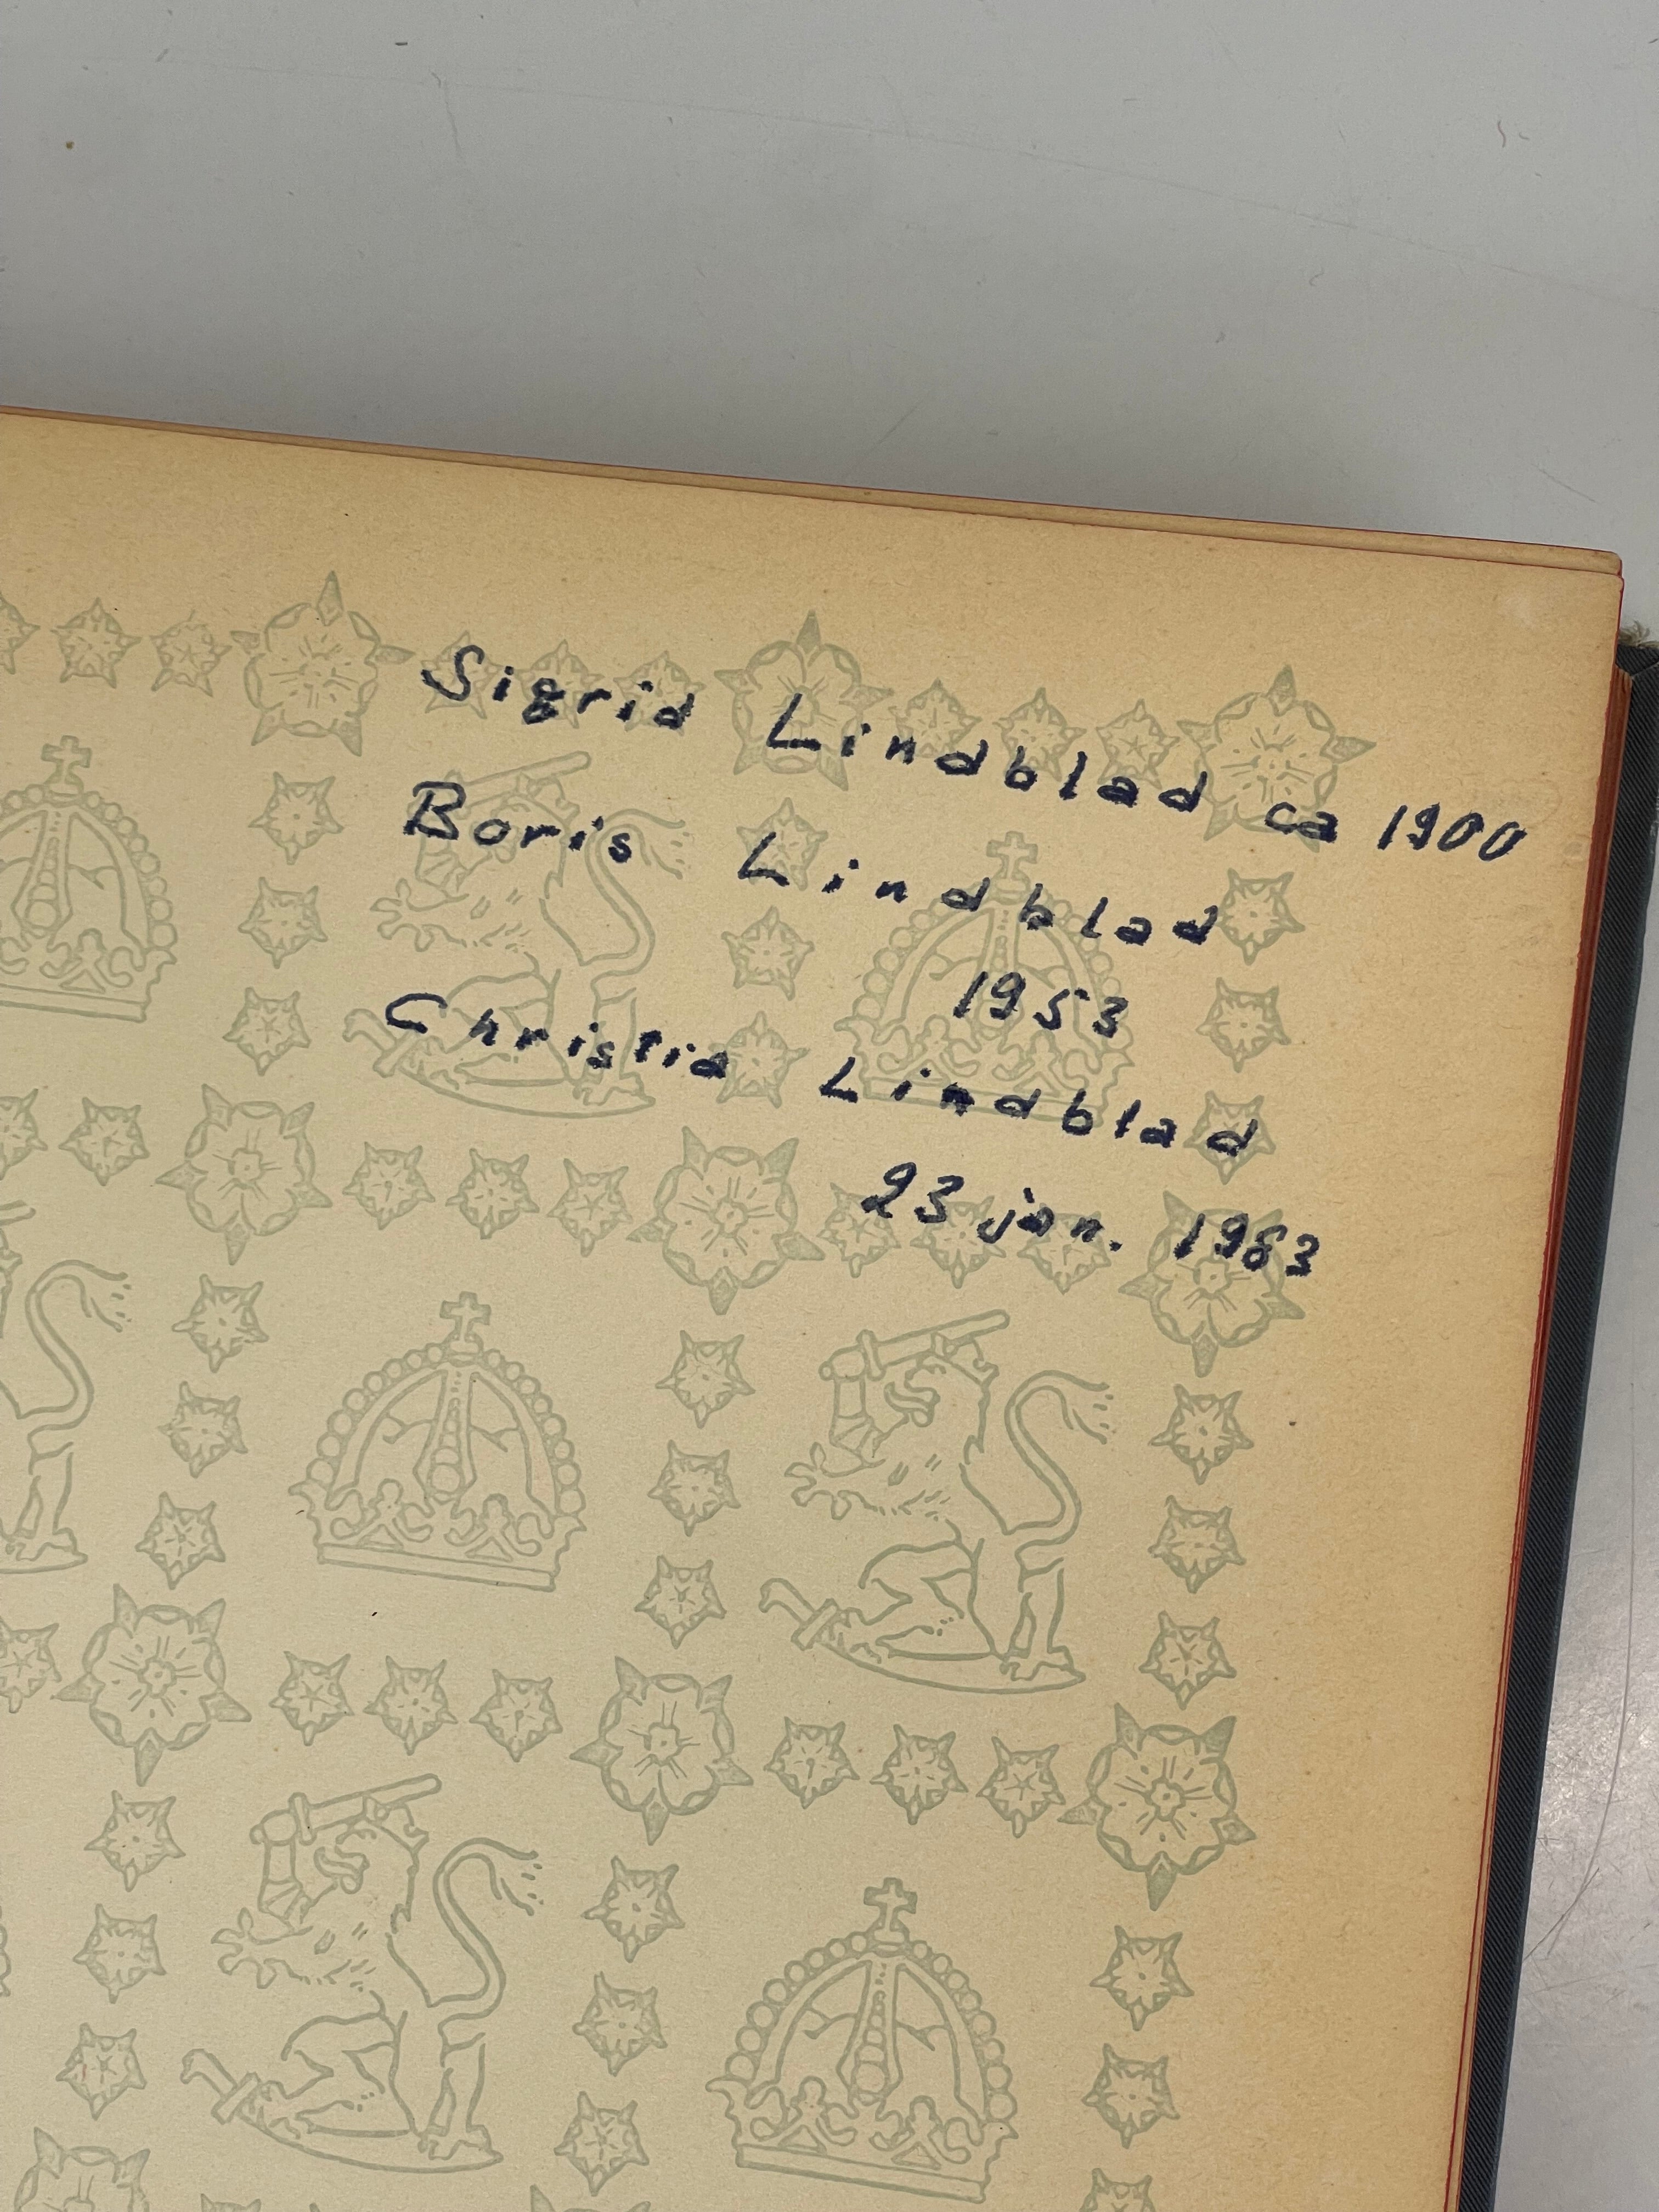 Sigrid Lindblad ca 1900
Boris Lindblad
1953
Christia Lindblad
23 jan. 1983